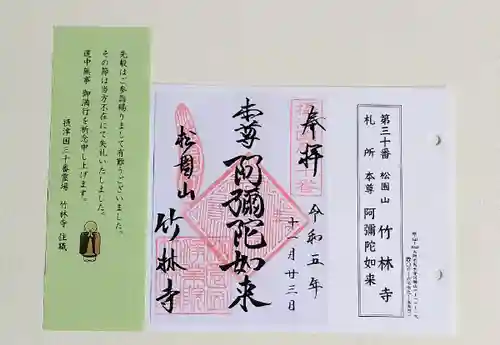 先般はご参詣賜りまして有難うございました。
その節は当方不在にて失礼いたしました。
道中無事 御満行を祈念申し上げます。
摂津国三十番霊場 竹林寺 住職
奉拝
令和五年
十一月廿三日
本尊
阿彌陀如来
松園山
竹林寺
第三十番 松園山 竹林寺
札所本尊 阿彌陀如来